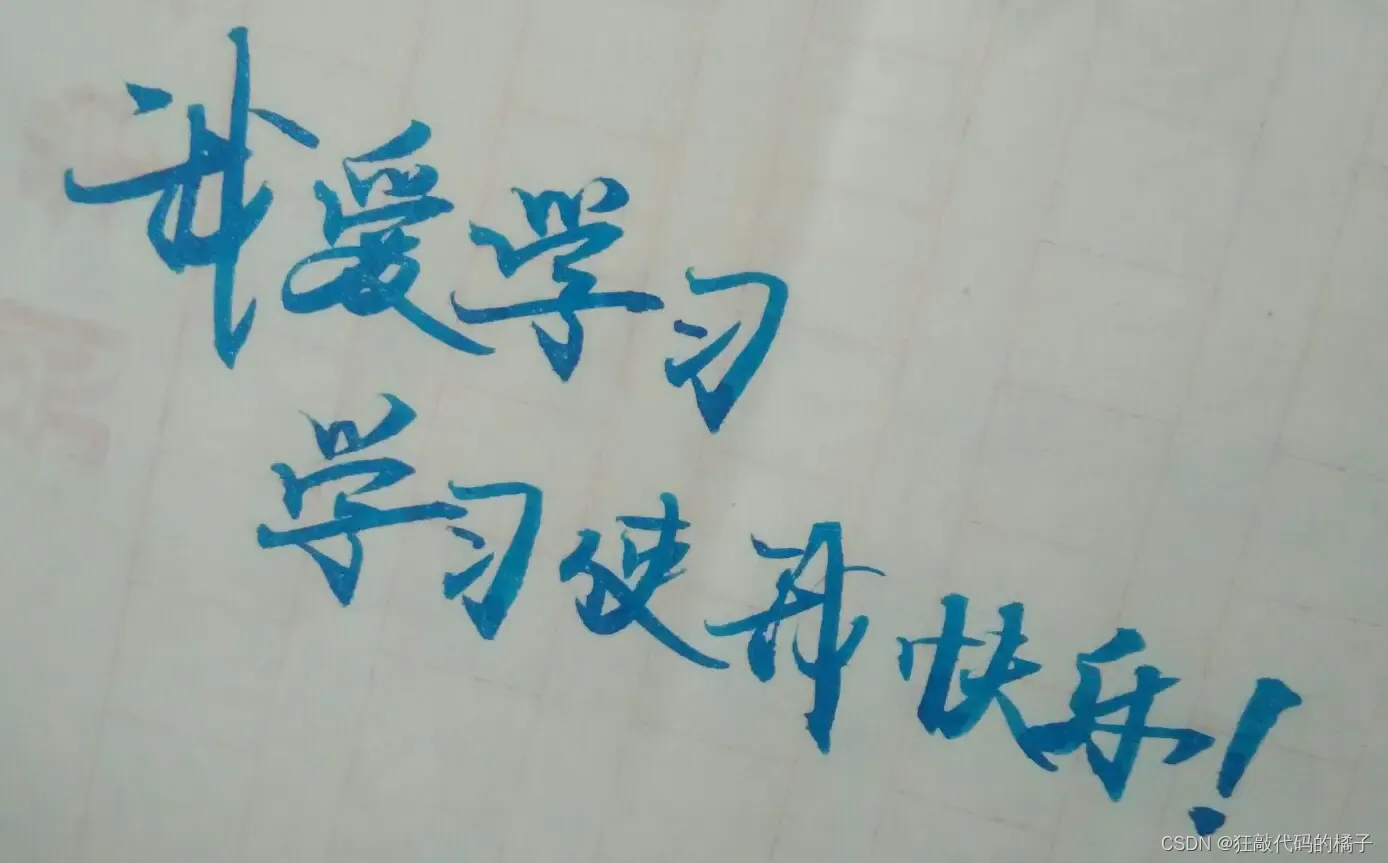 我爱学习
学习使我快乐!
CSDN @狂敲代码的橘子